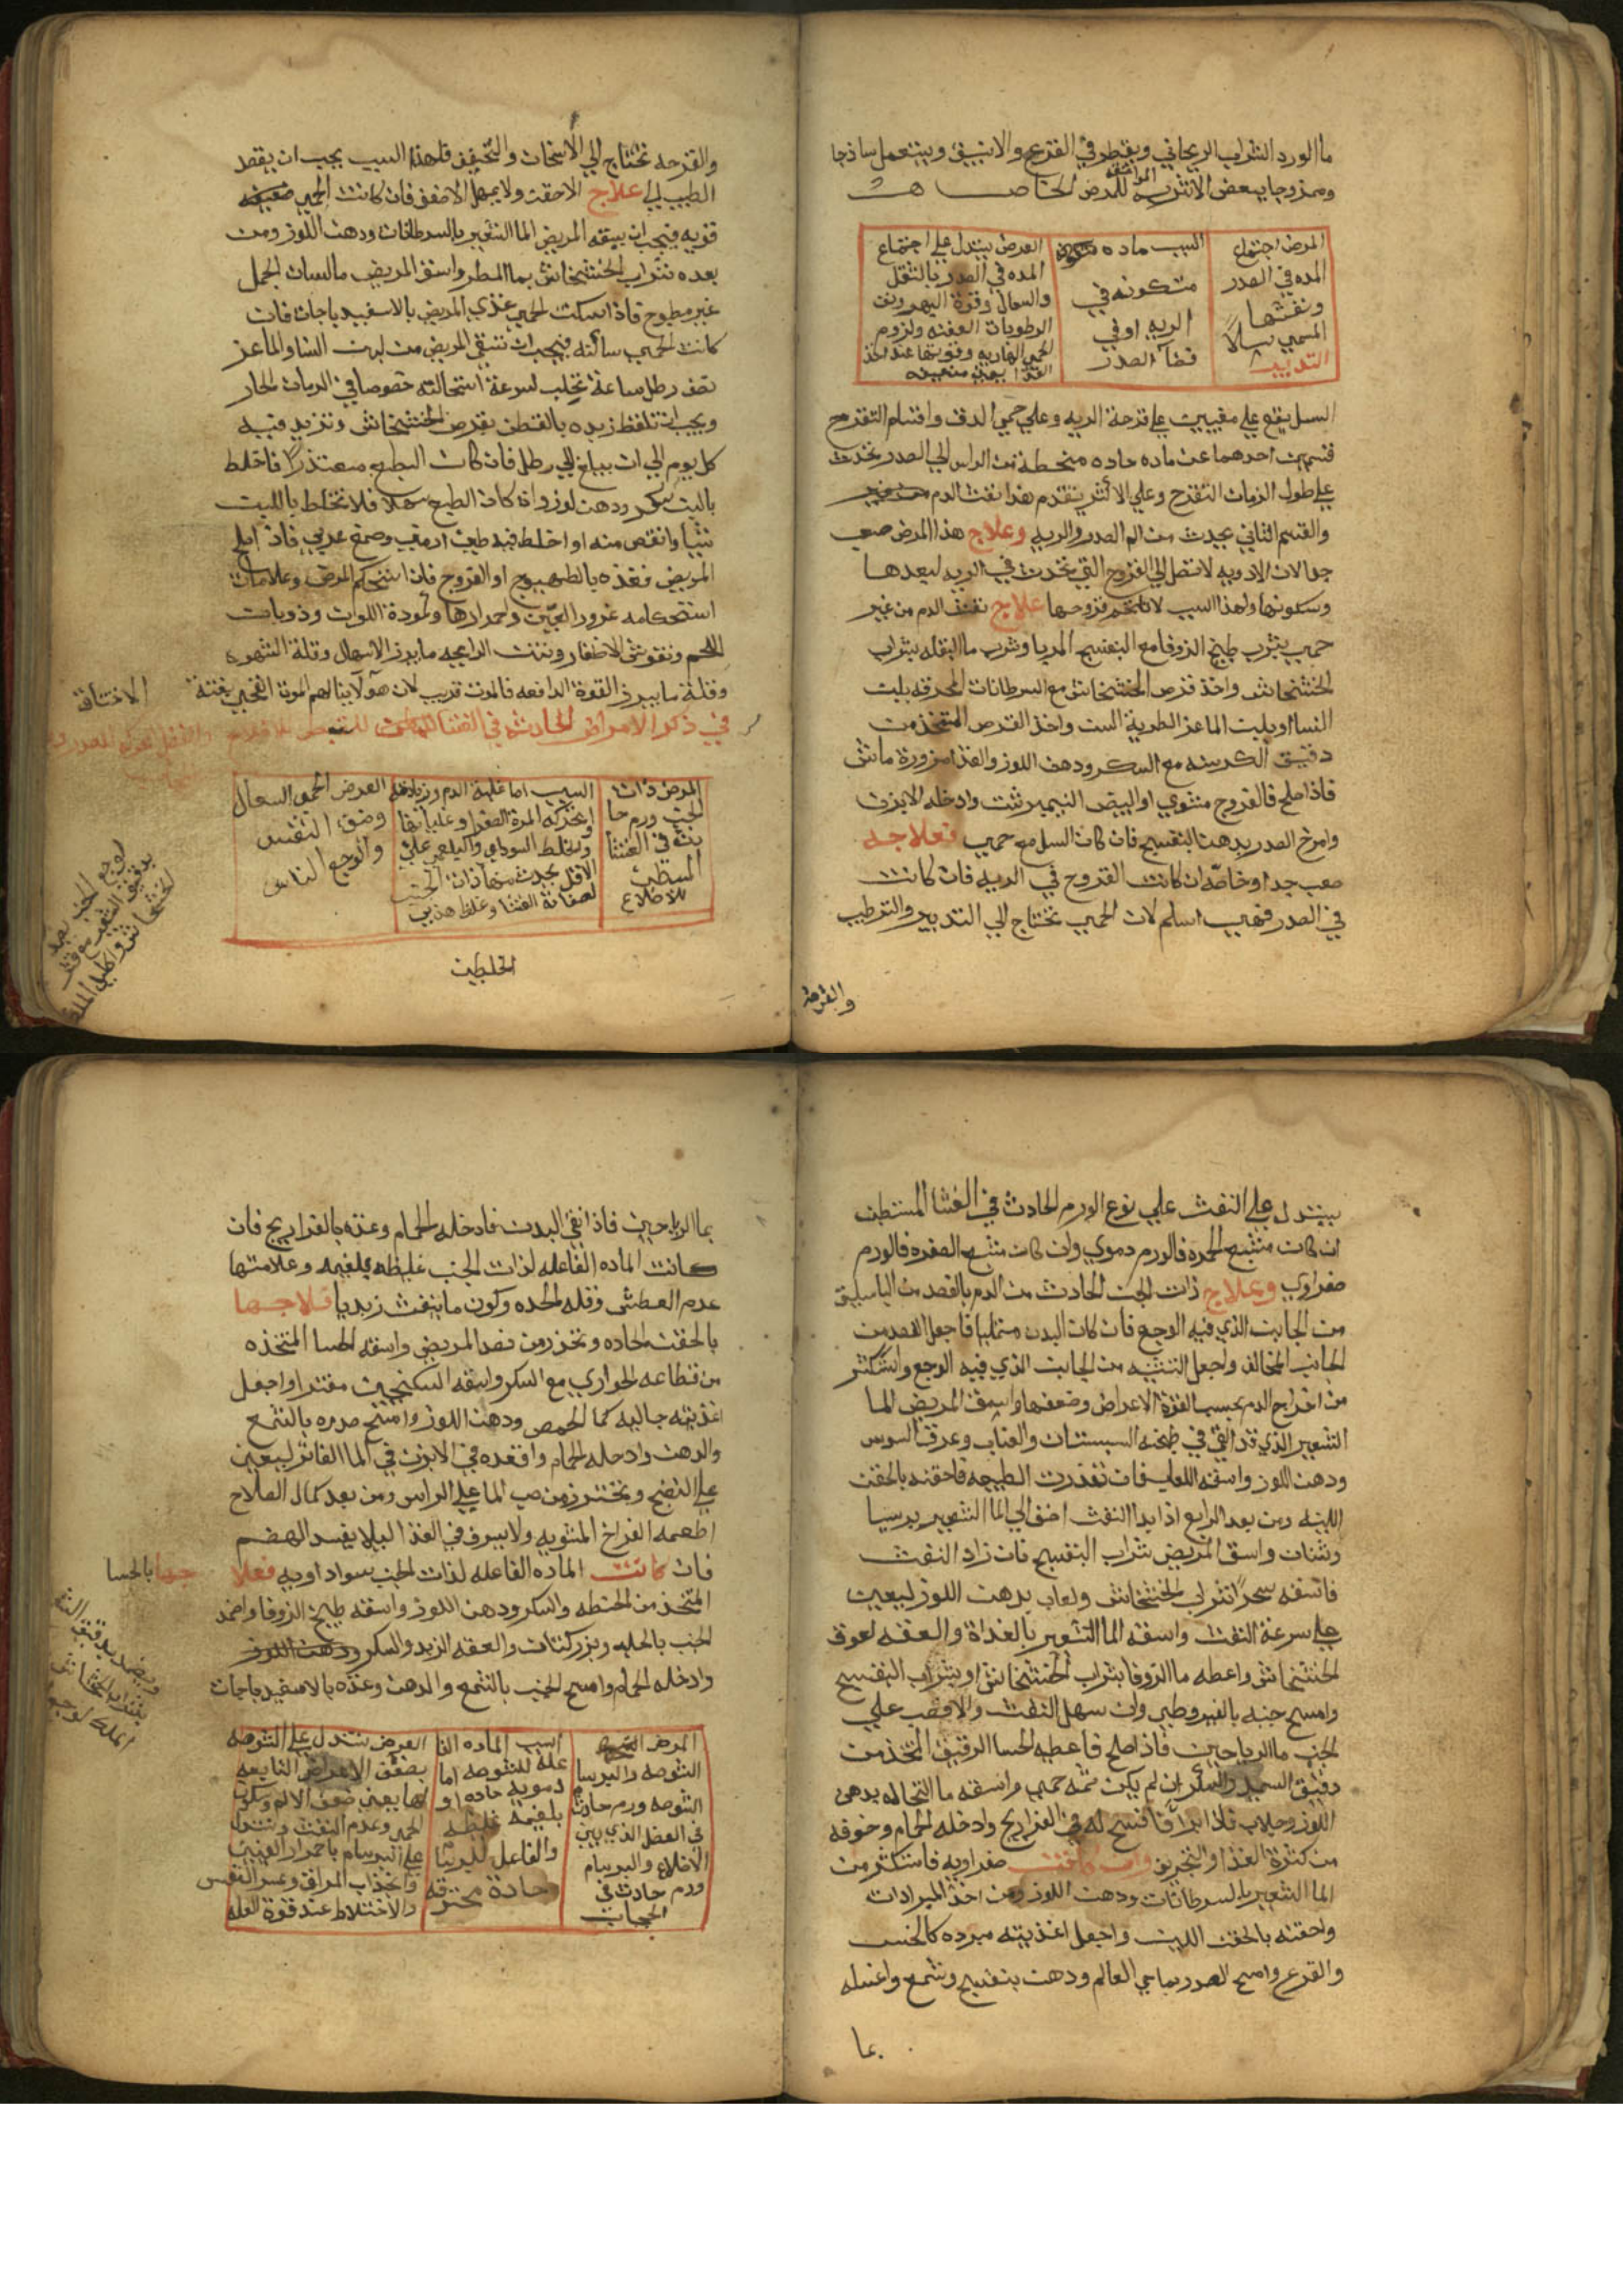 ماالورد الشراب الريحاني ويقطر في القرع والانبيق ويستعمل ساذجا
وممزوجا ببعض الاشربه الموافقه للمرض الخاص
المرض اجتماع
المده في الصدر
ونفثها
المسمي سلاً
التدبير
السبب ماده
متكونه في
الريه او في
فضآ الصدر
العرض يستدل علي اجتماع
المده في الصدر بالثقل
والسعال وقوة البهر ونفث
الرطوبات العفنه ولزوم
الحمي الهاديه وقوتها عند اخذ
الغذا
السل يقع علي معنيين علي قرحة الريه وعلي حمي الدق واقسام التقرح
قسمين احدهما عن ماده حاده منحطة من الراس الي الصدر تحدث
علي طول الزمان التقرح وعلي الاكثر يتقدم هذا نفث الدم
والقسم الثاني يحدث من الم الصدر والريه وعلاج هذا المرض صعب
جدا لان الادويه لا تصل الي القروح التي تحدث في الريه لبعدها
وسكونها ولهذا السبب لا تلتحم قروحها علاج نفث الدم من غير
حمي يشرب طبيخ الزوفا مع البنفسج المربا وشرب ماالبقله بشراب
الخشخاش واخذ قرص الخشخاش مع السرطانات المحرقه بلبن
النسا او بلبن الماعز الطرية السن واخذ القرص المتخذ من
دقيق الكرسنه مع السكر ودهن اللوز والغذا مزورة ماش
فاذا صلح فالفروج مشوي او البيض النيمبرشت وادخله الابزن
وامرخ الصدر بدهن البنفسج فان كان السل مع حمي فعلاجه
صعب جدا وخاصة ان كانت القروح في الريه فان كانت
في الصدر فهي اسلم لان الحمي تحتاج الي التدبير والترطيب
والقرحه
والقرحه تحتاج الي الاسخان والتجفيف فلهذا السبب يجب ان يقصد
الطبيب الي علاج الاحقت ولا يهمل الاضعف فان كانت الحمي
قويه فيجب ان يسقه المريض الماالشعير بالسرطانات ودهن اللوز ومن
بعده شراب الخشخاش بماالمطر واسق المريض مالسان الحمل
غير مطبوخ فاذا سكنت الحمي غذي المريض بالاسفيدباجات فان
كانت الحمي ساكنه فيجب ان تسقي المريض من لبن النسا والماعز
نصف رطل ساعة تحلب لسرعة استحالته خصوصا في الزمان الحار
ويجب ان تلقط زبده بالقطن بقرص الخشخاش وتزيد فيه
كل يوم الي ان يبلغ الي رطل فان كان الطبع متعذرًا فاخلط
بالبن سكر ودهن لوز وان كان الطبع سهلا فلا تخلط باللبن
شيا وانقص منه او اخلط فيه طين ارمني وصمغ عربي فاذا
المريض فغذه بالطيهوج او الفروج فان استحكم المرض وعلامات
استحكامه غرور العينين واحمرارها وكمودة اللون وذوبان
اللحم وتقوش الاظفار ونتن الرايحه مايبرز الاسهال وقلة الشهوه
وقلة مايبرز القوة الدافعه فالموت قريب لان هولآ ينالهم الموت الفجي بغتة
الاختناق
في ذكر الامراض الحادثه في الغشا المستبطن للاضلاع
المرض ذات
الجنب ورم حا
دث في الغشا
المستبطن
للاضلاع
السبب اما غلبة الدم وزيادته
او حركه المرة الصفرا وغليانها
والخلط السوداي والبلغمي علي
الاقل يحدث منهما ذات الجنب
لصفاقة الغشا وغلظ هذين
العرض الحمي السعال
وضيق النفس
والوجع الناخس
الخلطين
لوجع الجنب يضمد
بدقيق الشعير
الخشخاش واكليل الملك
يستدل علي النفث علي نوع الورم الحادث في الغشا المستبطن
ان كان مشبع الحمره فالورم دموي وان كان مشبع الصفره فالورم
صفراوي وعلاج ذات الجنب الحادث من الدم بالفصد من الباسليق
من الجانب الذي فيه الوجع فان كان البدن ممتليا فاجعل الفصد من
الجانب المخالف واجعل التثنيه من الجانب الذي فيه الوجع واستكثر
من اخراج الدم بحسب القوة الاعراض وضعفها واسق المريض الما
الشعير الذي قد القي في طبخه السبستان والعناب وعرق السوس
ودهن اللوز واسقه اللعاب فان تعذرت الطبيعه فاحقنه بالحقن
اللينه ومن بعد الرابع اذا بدا النفث اضف الي الماالشعير برسيا
وشان واسق المريض شراب البنفسج فان زاد النفث
فاسقه سحرًا شراب الخشخاش ولعاب بدهن اللوز ليعين
علي سرعة النفث واسقه الماالشعير بالغداة والعقه لعوق
الخشخاش واعطه ماالزوفا بشراب الخشخاش او بشراب البنفسج
وامسح جنبه بالقيروطي وان سهل النفث والا فصب علي
الجنب ماالرياحين فاذا صلح فاعطه الحسا الرقيق المتخذ من
دقيق السميد والسكر ان لم يكن ثمه حمي واسقه ماالنخاله بدهن
اللوز وجلاب فاذا ابرا فافسح له في الفراريج وادخله الحمام وخوفه
من كثرة الغذا والتخم وان كانت صفراويه فاستكثر من
الماالشعير بالسرطانات ودهن اللوز ومن اخذ المبردات
واحقنه بالحقن اللين واجعل اغذيته مبرده كالخس
والقرع وامسح الصدر بماحي العالم ودهن بنفسج وشمع واغسله
بما
بماالرياحين فاذا نقي البدن فادخله الحمام وغذه بالفراريج فان
كانت الماده الفاعله لذات الجنب غليظه بلغميه وعلامتها
عدم العطش وقله الحده وكون ماينفث زبديا فعلاجها
بالحقن الحاده وتحذر من فصد المريض واسقه الحسا المتخذه
من قطاعه الحواري مع السكر واسقه السكنجبين مفترا واجعل
اغذيته جاليه كما الحمص ودهن اللوز وامسح صدره بالشمع
والدهن وادخله الحمام واقعده في الابزن في الماالفاتر ليعين
علي النضج وتحترز من صب الما علي الراس ومن بعد كمال الصلاح
اطعمه الفراخ المشويه ولا يسرف في الغذا ليلا يفسد الهضم
فان كانت الماده الفاعله لذات الجنب سوداويه فعلا
جها بالحسا
المتخذ من الحنطه والسكر ودهن اللوز واسقه طبيخ الزوفا واضمد
الجنب بالحلبه وبزر كتان والعقه الزبد والسكر ودهن اللوز
وادخله الحمام وامسح الجنب بالشمع والدهن وغذه بالاسفيدباجات
ويضمد بدقيق الشعير
بشراب الخشخاش
الملك لوجع
المرض
الشوصه والبرسام
الشوصه ورم حادث
في العضل الذي بين
الاضلاع والبرسام
ورم حادث في
الحجاب
السبب الماده الفا
عله للشوصه اما
دمويه حاده او
بلغميه غليظه
والفاعل للبرسام
حادة محترقه
العرض يستدل علي الشوصه
بضعف الاعراض التابعه
لها يعني ضعف الالم وسكون
الحمي وعدم النفث ويستدل
علي البرسام باحمرار العينين
وانجذاب المراق وعسر النفس
والاختلاط عند قوة العله